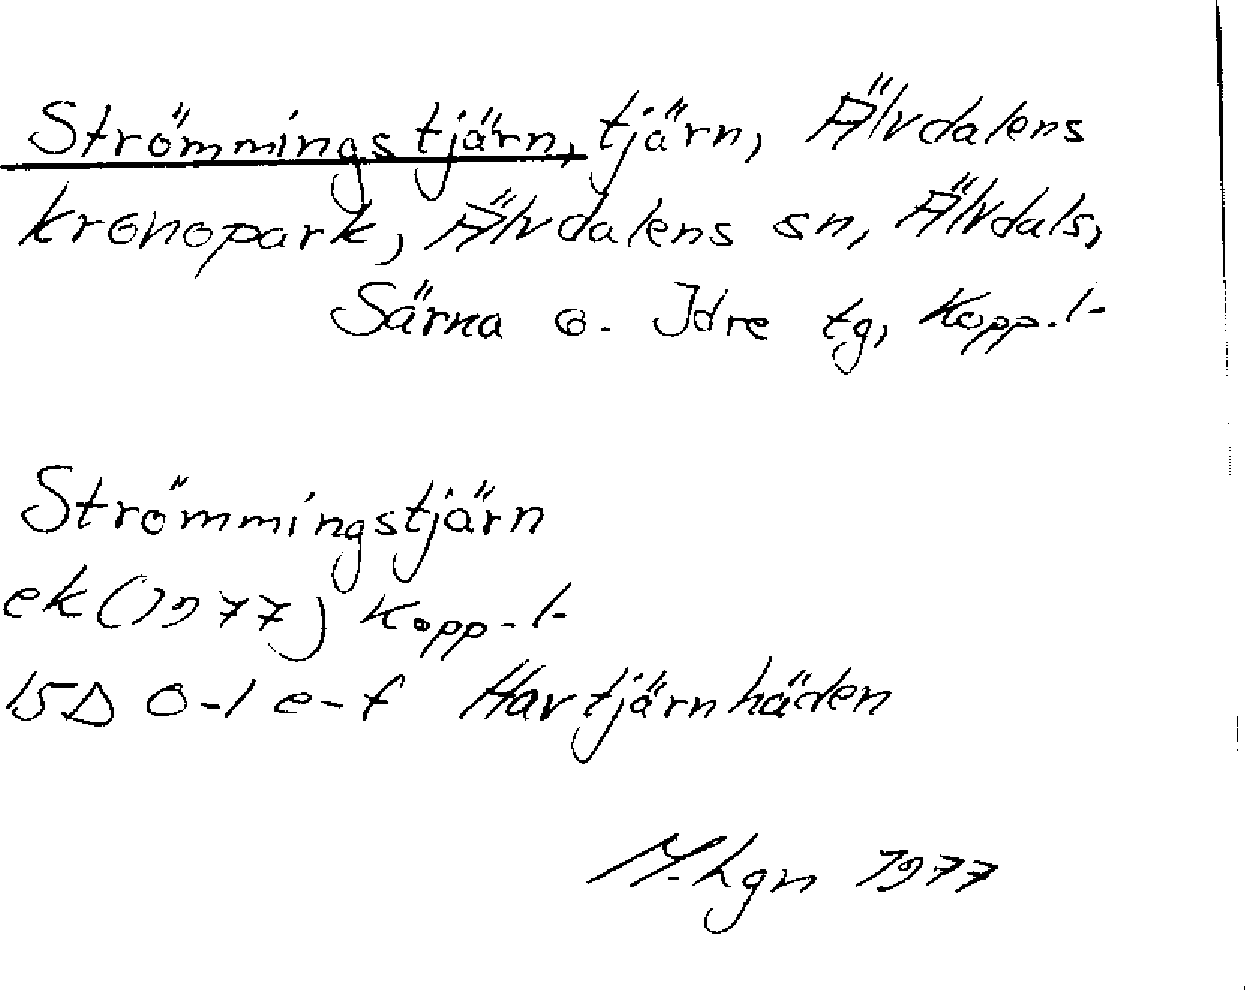 Strömmingstjärn, tjärn, Älvdalens
kronopark, Älvdalens sn, Älvdals,
Särna o. Idre tg, Kopp.l-
Strömmingstjärn
ek (1977) Kopp.-l-
15D 0-1 e-f Härtjärnhäden
M. Lgn 1977